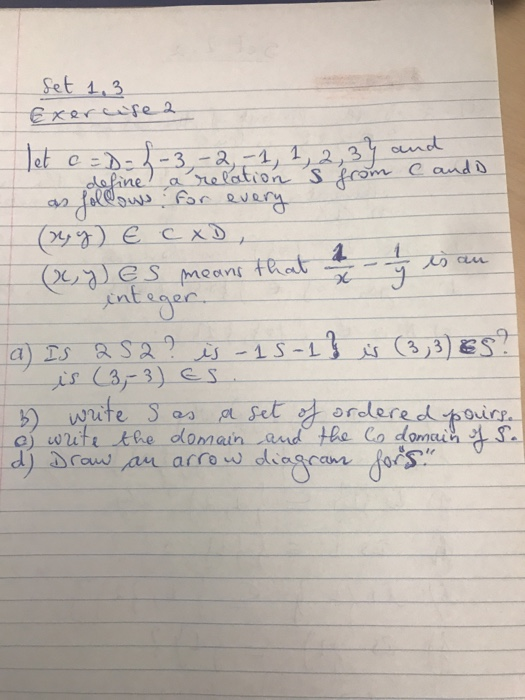 Set 1.3
Exercise 2
let C = D = {-3, -2, -1, 1, 2, 3} and
define a relation S from C and D
as follows: For every
(x,y) ∈ C x D,
(x,y) ∈ S means that 1/x - 1/y is an
integer.
a) Is 2 S 2? is -1 S -1} is (3,3) ∈ S?
is (3,-3) ∈ S.
b) write S as a set of ordered pairs.
c) write the domain and the Co domain of S.
d) Draw an arrow diagram for "S."